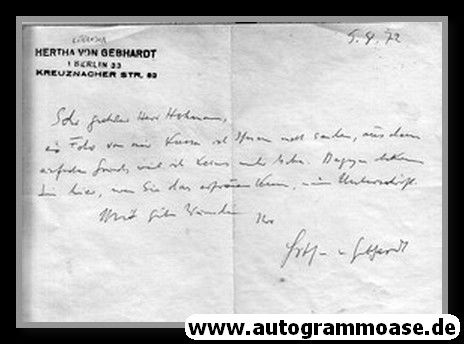 HERTHA VON GEBHARDT
1 BERLIN 33
KREUZNACHER STR. 63
5.9.72
Sehr geehrter Herr Hohmann,
ein Foto von mir kann ich Ihnen nicht senden, aus dem
einfachen Grunde weil ich keines mehr habe. Dagegen bekommen
Sie hier, wenn Sie das erfreuen kann, meine Unterschrift.
Mit guten Wünschen
Ihre
Hertha v. Gebhardt
www.autogrammoase.de